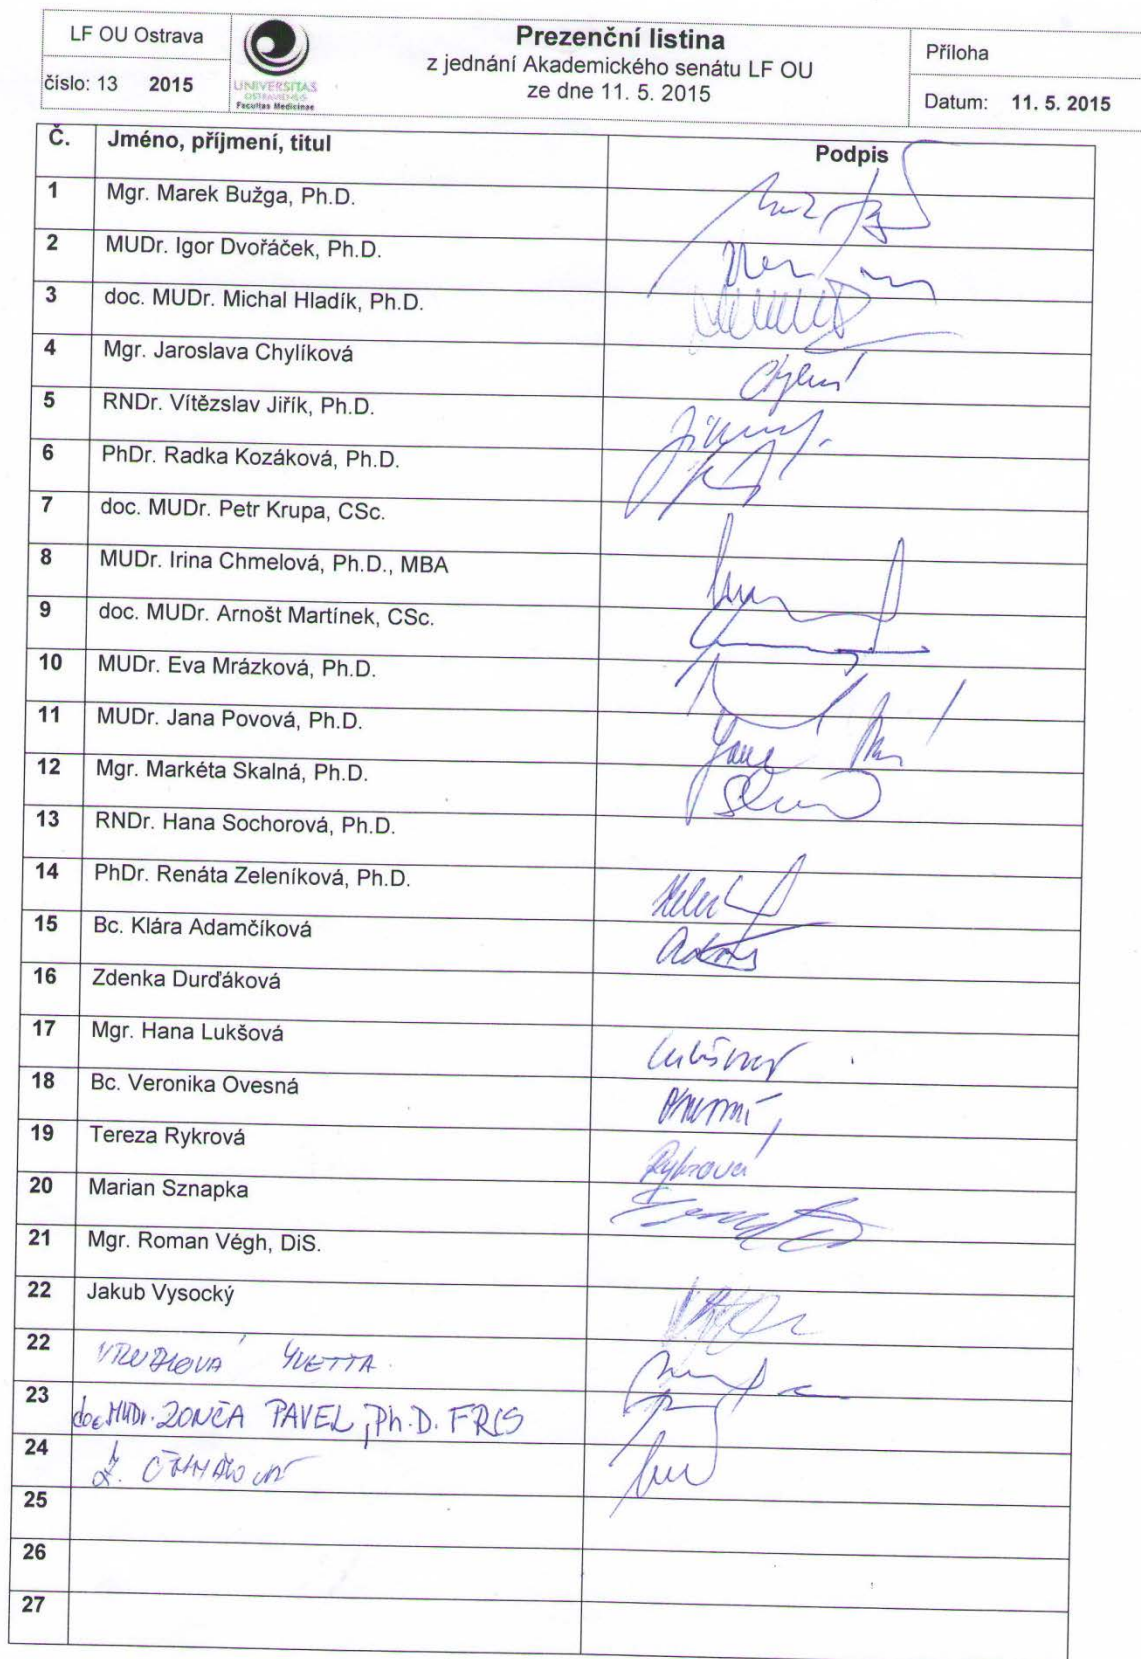 LF OU Ostrava
číslo: 13 2015
UNIVERSITAS
OSTRAVIENSIS
Facultas Medicinae
Prezenční listina
z jednání Akademického senátu LF OU
ze dne 11. 5. 2015
Příloha
Datum: 11. 5. 2015
Č. Jméno, příjmení, titul Podpis
1 Mgr. Marek Bužga, Ph.D.
2 MUDr. Igor Dvořáček, Ph.D.
3 doc. MUDr. Michal Hladík, Ph.D.
4 Mgr. Jaroslava Chylíková
5 RNDr. Vítězslav Jiřík, Ph.D.
6 PhDr. Radka Kozáková, Ph.D.
7 doc. MUDr. Petr Krupa, CSc.
8 MUDr. Irina Chmelová, Ph.D., MBA
9 doc. MUDr. Arnošt Martínek, CSc.
10 MUDr. Eva Mrázková, Ph.D.
11 MUDr. Jana Povová, Ph.D.
12 Mgr. Markéta Skalná, Ph.D.
13 RNDr. Hana Sochorová, Ph.D.
14 PhDr. Renáta Zeleníková, Ph.D.
15 Bc. Klára Adamčíková
16 Zdenka Durďáková
17 Mgr. Hana Lukšová
18 Bc. Veronika Ovesná
19 Tereza Rykrová Rykrová
20 Marian Sznapka
21 Mgr. Roman Végh, DiS.
22 Jakub Vysocký
22 YVETTA
23 doc. MUDr. ZONČA PAVEL, Ph.D. FRCS
24
25
26
27